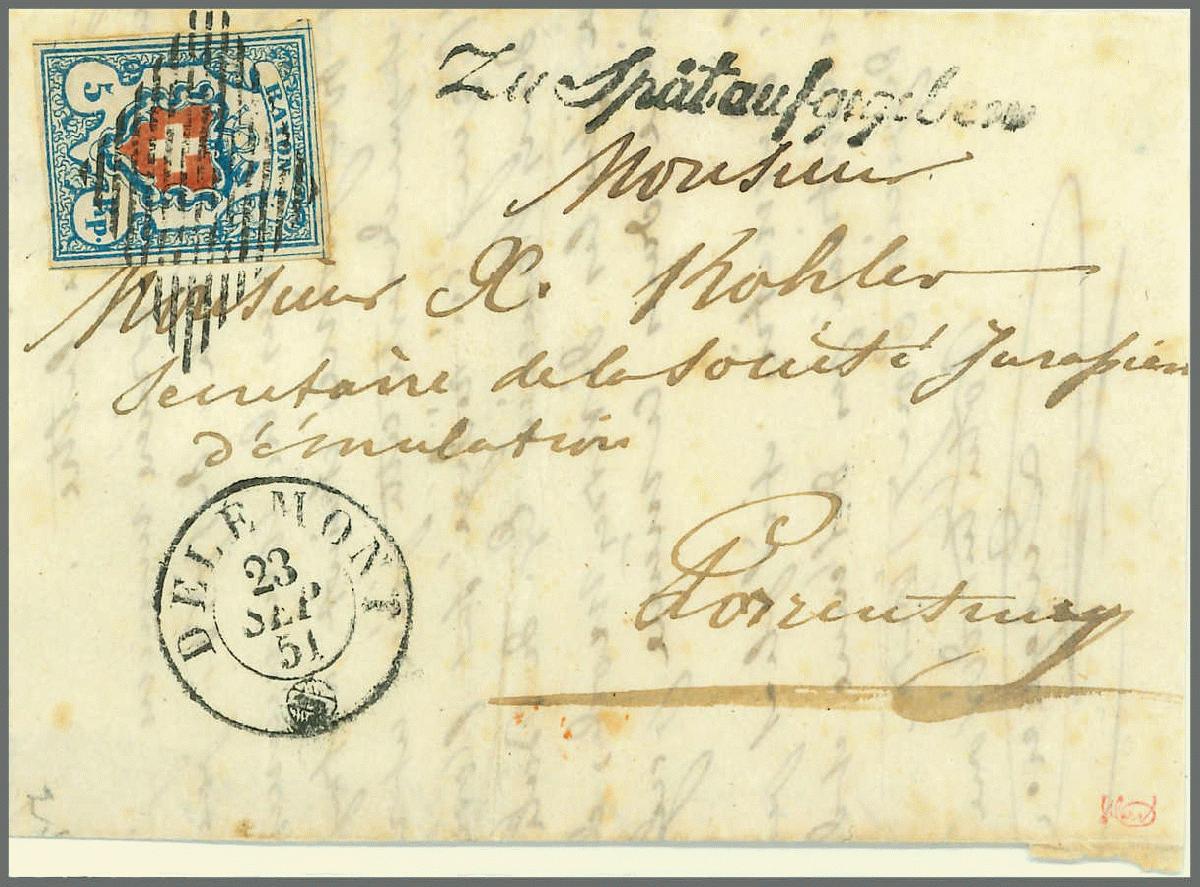 5
RAYON
Rp.
Zu Spät aufgegeben
Monsieur
Monsieur X. Kohler
Secretaire de la Société Jurassien
d'émulation
DELEMONT
23
SEP
51
Porrentruy